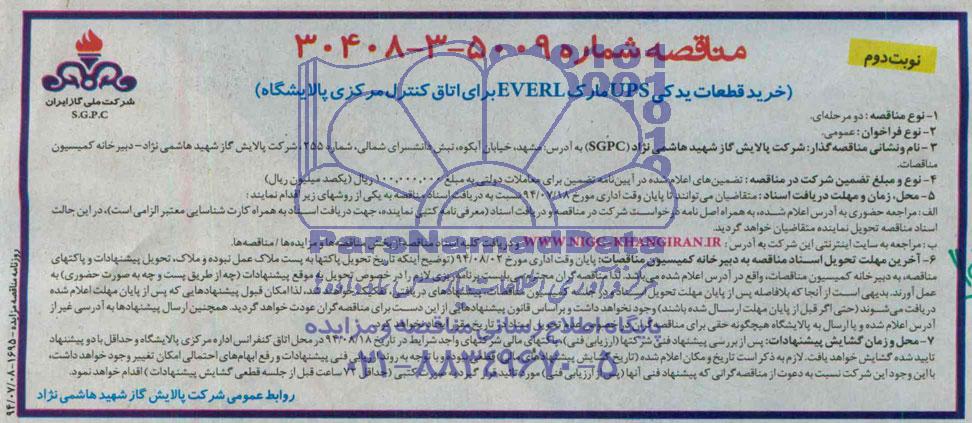 نوبت دوم
مناقصه شماره ۵۰۰۹-۳-۳۰۴۰۸
(خرید قطعات یدکی UPS مارک EVERL برای اتاق کنترل مرکزی پالایشگاه)
شرکت ملی گاز ایران
S.G.P.C
۱- نوع مناقصه: دو مرحله‌ای.
۲- نوع فراخوان: عمومی.
۳- نام و نشانی مناقصه گذار: شرکت پالایش گاز شهید هاشمی نژاد (SGPC) به آدرس: مشهد، خیابان آبکوه، نبش دانشسرای شمالی، شماره ۲۵۵، شرکت پالایش گاز شهید هاشمی نژاد- دبیرخانه کمیسیون
مناقصات.
۴- نوع و مبلغ تضمین شرکت در مناقصه: تضمین‌های اعلام شده در آیین‌نامه تضمین برای معاملات دولتی به مبلغ ۱۰۰،۰۰۰،۰۰۰ ریال (یکصد میلیون ریال)
۵- محل، زمان و مهلت دریافت اسناد: متقاضیان می‌توانند تا پایان وقت اداری مورخ ۹۴/۰۷/۱۸ نسبت به دریافت اسناد مناقصه به یکی از روشهای زیر اقدام نمایند:
الف: مراجعه حضوری به آدرس اعلام شده، به همراه اصل نامه درخواست شرکت در مناقصه و دریافت اسناد (معرفی‌نامه کتبی نماینده، جهت دریافت اسناد به همراه کارت شناسایی معتبر الزامی است)، در این حالت
اسناد مناقصه تحویل نماینده متقاضیان خواهد گردید.
ب: مراجعه به سایت اینترنتی این شرکت به آدرس: WWW.NIGC-KHANGIRAN.IR و دریافت کلیه اسناد مناقصه از بخش مناقصه‌ها و مزایده‌ها / مناقصه‌ها.
۶- آخرین مهلت تحویل اسناد مناقصه به دبیرخانه کمیسیون مناقصات: پایان وقت اداری مورخ ۹۴/۰۸/۰۲ (توضیح اینکه تاریخ تحویل پاکتها به پست ملاک عمل نبوده و ملاک، تحویل پیشنهادات و پاکتهای
مناقصه، به دبیرخانه کمیسیون مناقصات، واقع در آدرس اعلام شده می‌باشد. لذا مناقصه گران محترم می‌بایست برنامه‌ریزی لازم را در خصوص تحویل به موقع پیشنهادات (چه از طریق پست و چه به صورت حضوری) به
عمل آورند. بدیهی است از آنجا که بلافاصله پس از پایان مهلت تحویل اسناد، در جلسه کمیسیون مناقصات، پیشنهادهای دریافتی تفکیک خواهند شد، لذا امکان قبول پیشنهادهایی که پس از پایان مهلت اعلام شده
دریافت می‌شوند (حتی اگر قبل از پایان مهلت ارسال شده باشند) وجود نخواهد داشت و بر اساس قانون پیشنهادهایی از این دست برای مناقصه گران عودت خواهد گردید. همچنین ارسال پیشنهادها به آدرسی غیر از
آدرس اعلام شده و یا ارسال به پالایشگاه هیچگونه حقی برای مناقصه
۷- محل و زمان گشایش پیشنهادات: پس از بررسی پیشنهاد فنی شرکتها (ارزیابی فنی)، پیشنهادهای مالی شرکتهای واجد شرایط در تاریخ ۹۴/۰۸/۱۸ در محل اتاق کنفرانس اداره مرکزی پالایشگاه و حداقل با دو پیشنهاد
تایید شده گشایش خواهد یافت. لازم به ذکر است تاریخ و مکان اعلام شده (تاریخ گشایش پیشنهادهای مالی) قطعی نبوده و با توجه به روند ارزیابی فنی پیشنهادات و رفع ابهام‌های احتمالی امکان تغییر وجود خواهد داشت،
با این وجود این شرکت نسبت به دعوت از مناقصه گرانی که پیشنهاد فنی آنها (پس از ارزیابی فنی) مورد تایید قرار گیرد به صورت کتبی (حداقل ۲۴ ساعت قبل از جلسه قطعی گشایش پیشنهادات) اقدام خواهد نمود.
روابط عمومی شرکت پالایش گاز شهید هاشمی نژاد
روزنامه مناقصه مزایده - ۱۶۹۵ - ۹۴/۰۷/۰۸
پایگاه اطلاع رسانی مناقصه و مزایده
۰۲۱-۸۸۳۴۹۶۷۰-۵